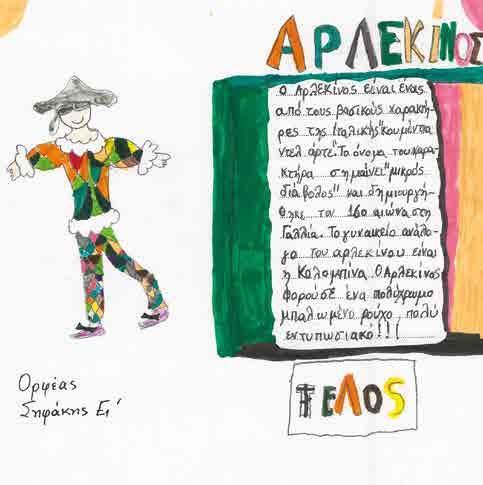 ΑΡΛΕΚΙΝΟΣ
Ο Αρλεκίνος είναι ένας
από τους βασικούς χαρακτή-
ρες της Ιταλικής "κουμέντια
ντελ άρτε" Το όνομα του χαρα-
κτήρα σημαίνει "μικρός
διάβολος" και δημιουργή-
θηκε τον 16ο αιώνα στη
Γαλλία. Το γυναικείο ανάλο-
γο του αρλεκίνου είναι
η Κολομπίνα. Ο Αρλεκίνος
φορούσε ένα πολύχρωμο
μπαλωμένο ρούχο, πολύ
εντυπωσιακό!!!
ΤΕΛΟS
Ορφέας
Σηφάκης Ε1'